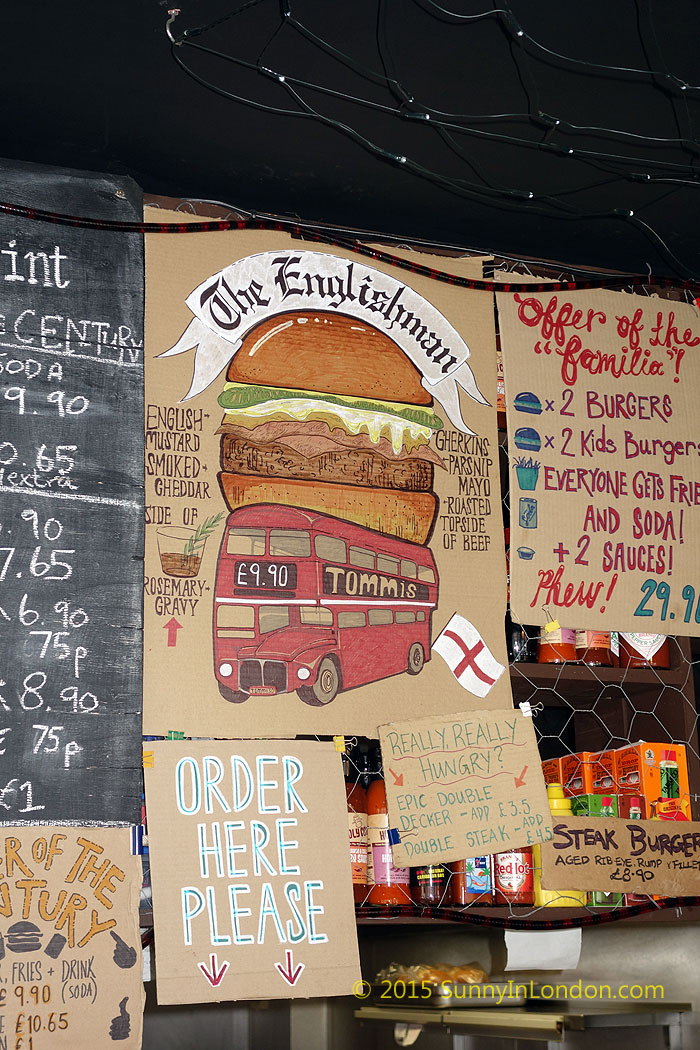 int
CENTURY
SODA
9.90
0.65
extra
.90
7.65
6.90
75p
8.90
75p
£1
The Englishman
ENGLISH-
MUSTARD
SMOKED-
CHEDDAR
SIDE OF
ROSEMARY-
GRAVY
GHERKINS
-PARSNIP
MAYO
-ROASTED
TOPSIDE
OF BEEF
£9.90
TOMMIS
TOMMIS
Offer of the
"familia"!
x 2 BURGERS
x 2 Kids Burgers
EVERYONE GETS FRIE
AND SODA!
+ 2 SAUCES!
Phew! 29.9
ORDER
HERE
PLEASE
REALLY, REALLY
HUNGRY?
EPIC DOUBLE
DECKER - ADD £3.5
DOUBLE STEAK - ADD
£4.5
STEAK BURGER
AGED RIB-EYE, RUMP & FILLET
£8.90
Red lo
ER OF THE
NTURY
, FRIES + DRINK
£9.90 (SODA)
£10.65
£1
© 2015 SunnyInLondon.com